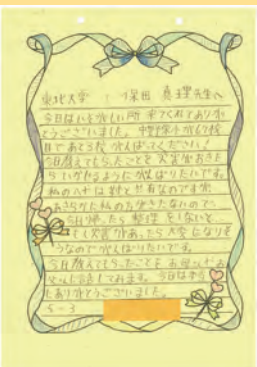 東北大学 保田 真理先生へ
今日はいそがしい所 来てくれてありが
とうございました。
目であと3校 がんばってください!
今日教えてもらったことを 災害がおきた
らいかせるように がんばりたいです。
私のへやは 妹と共有なのですが
あきらかに私の方がきたないので
今日帰ったら 整理 をしないと
もし災害があったら大変になりそ
うなのでがんばりたいです。
今日教えてもらったことを お母さんや
にありがとうございました。
5-3